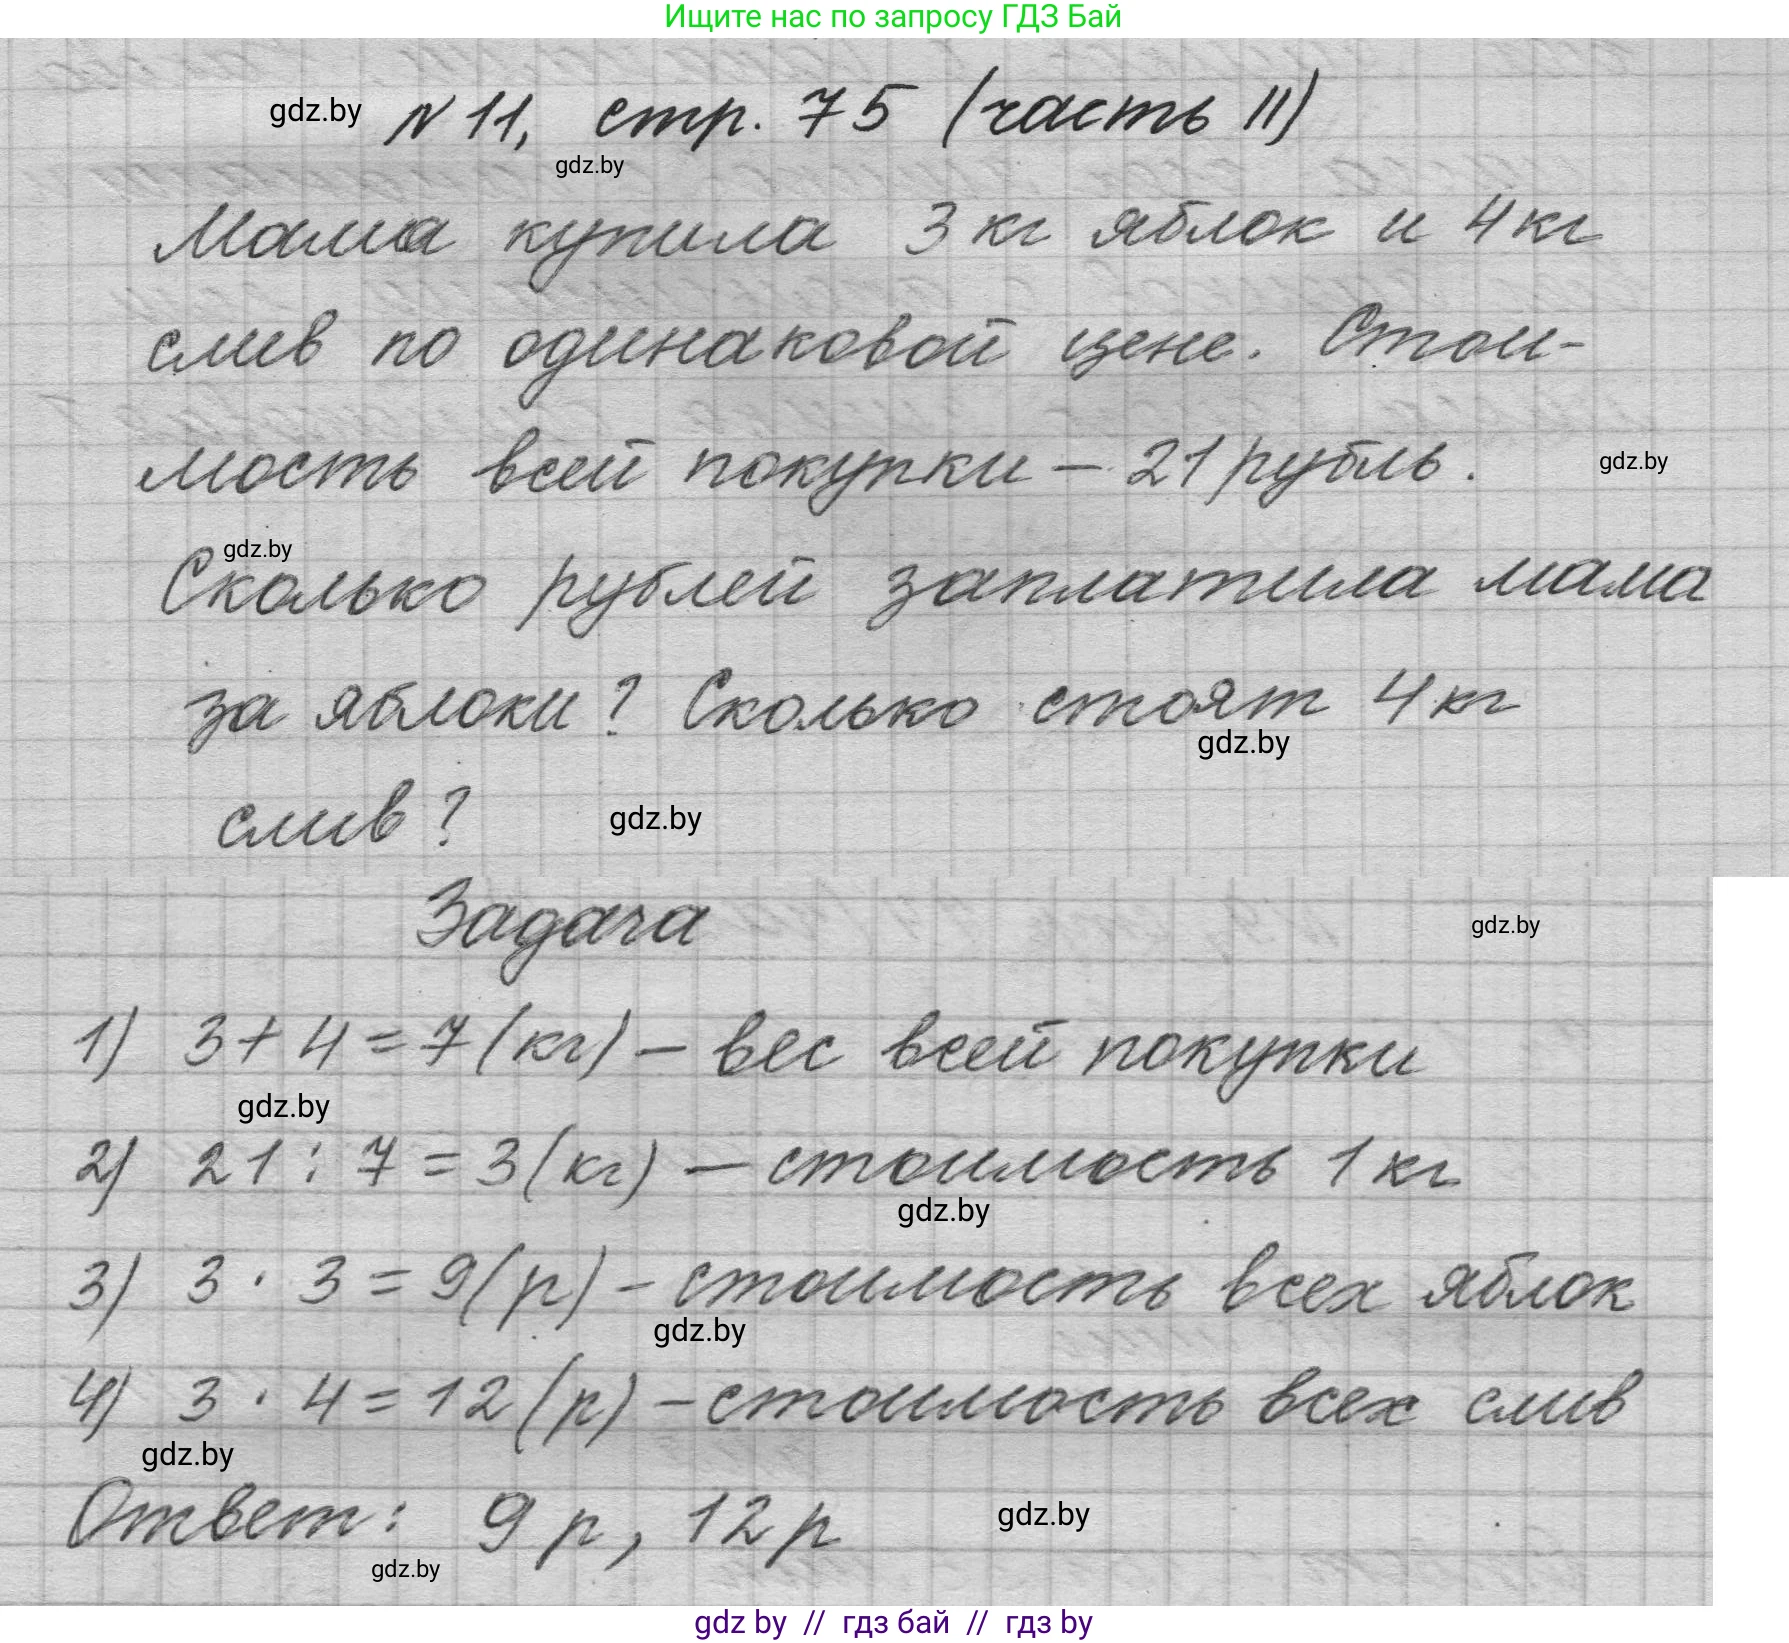 Ищите нас по запросу ГДЗ Бай
gdz.by № 11, стр. 75 (часть II)
gdz.by
Мама купила 3 кг яблок и 4 кг
слив по одинаковой цене. Стои-
мость всей покупки — 21 рубль. gdz.by
gdz.by
Сколько рублей заплатила мама
за яблоки? Сколько стоят 4 кг
gdz.by
слив? gdz.by
Задача gdz.by
1) 3 + 4 = 7 (кг) — вес всей покупки
gdz.by
2) 21 : 7 = 3 (кг) — стоимость 1 кг
gdz.by
3) 3 · 3 = 9 (р) - стоимость всех яблок
gdz.by
4) 3 · 4 = 12 (р) - стоимость всех слив
gdz.by
Ответ: 9 р, 12 р gdz.by
gdz.by
gdz by // гдз бай // гдз by